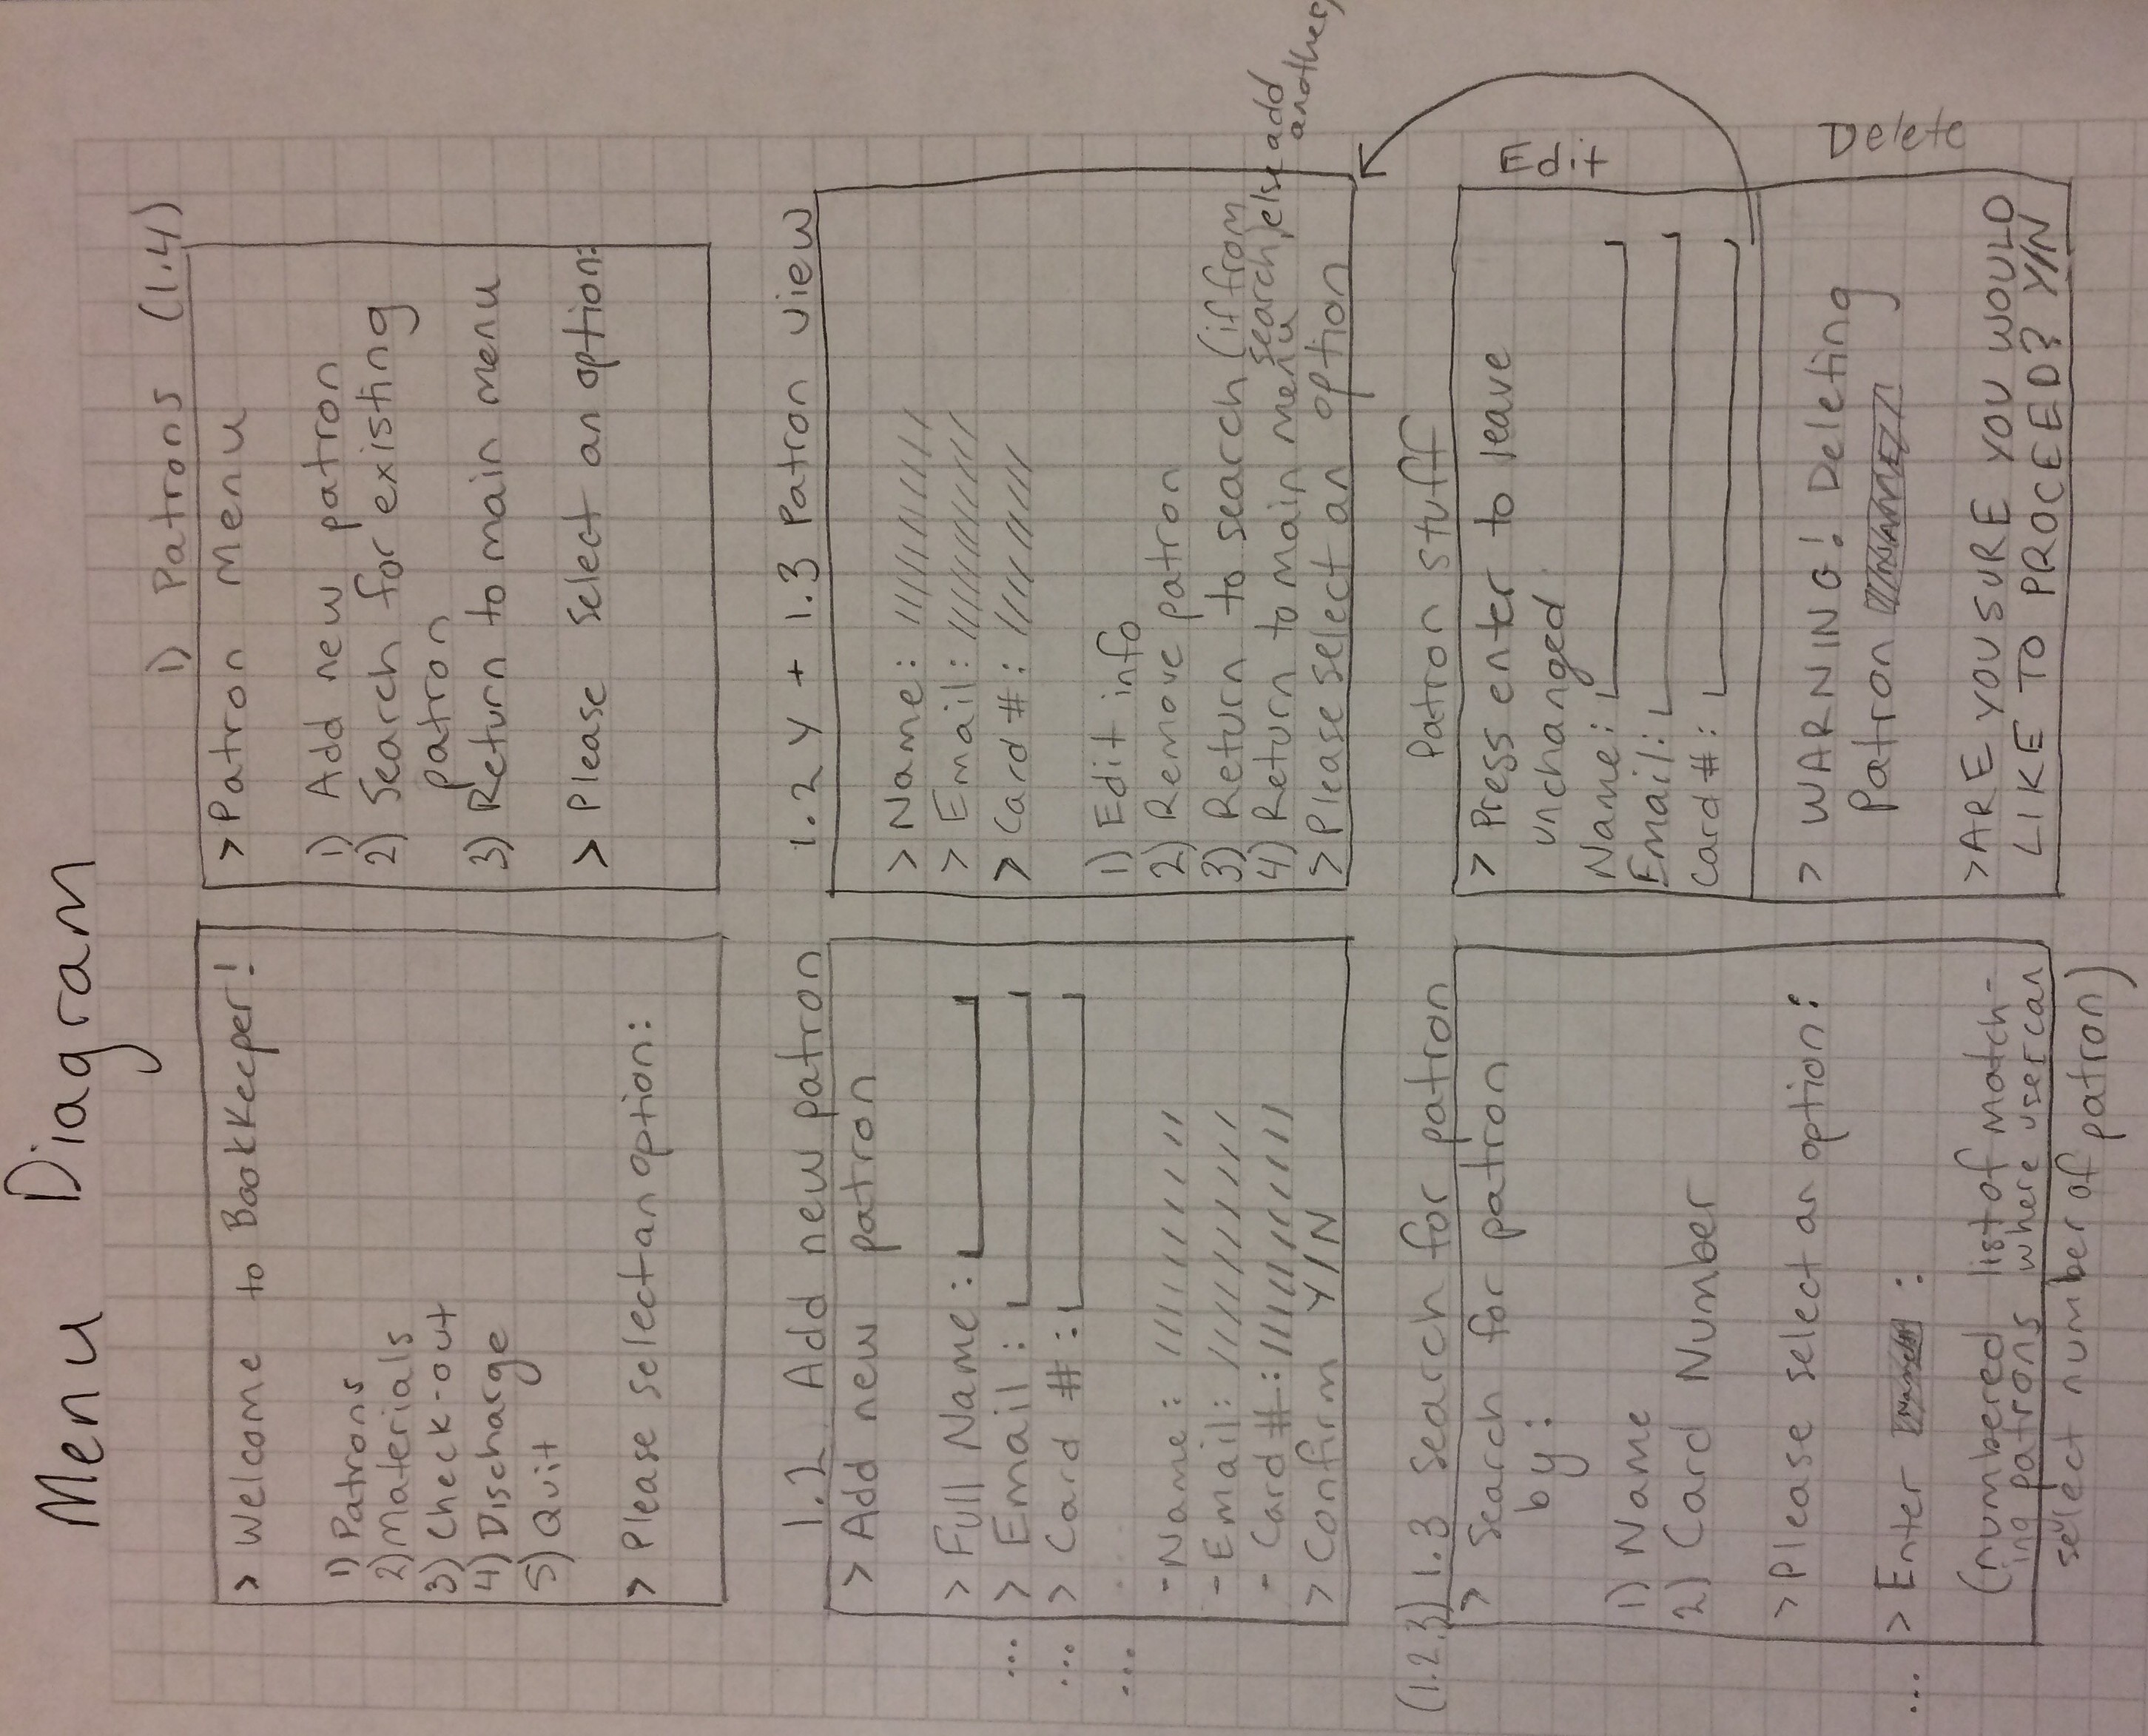 Menu Diagram
> Welcome to BookKeeper!
1) Patrons
2) Materials
3) Check-out
4) Discharge
5) Quit
> Please select an option:
1) Patrons (1.4)
> Patron Menu
1) Add new patron
2) Search for existing
patron
3) Return to main menu
> Please select an option:
1.2 Add new patron
> Add new patron
> Full Name:
... > Email:
... > Card #:
...
- Name: //////////
- Email: //////////
- Card #: //////////
> Confirm Y/N
1.2 Y + 1.3 Patron view
> Name: //////////
> Email: //////////
> Card #: /////////
1) Edit info
2) Remove patron
3) Return to search (if from
search, else add
another)
4) Return to main menu
> Please select an option
(1.2.3) 1.3 Search for patron
> Search for patron
by:
1) Name
2) Card Number
> Please select an option:
... > Enter :
(numbered list of match-
ing patrons where user can
select number of patron)
Patron stuff
> Press enter to leave
unchanged
Name:
Email:
Card #:
Edit
> WARNING! Deleting
Patron NAME
> ARE YOU SURE YOU WOULD
LIKE TO PROCEED? Y/N
Delete